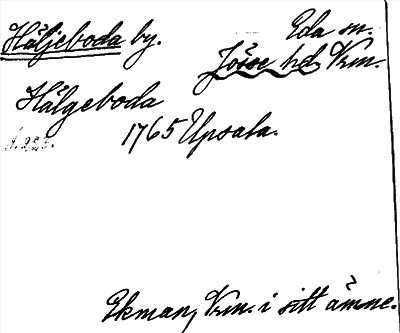 Häljeboda by. Eda sn.
Jösse hd, Vrm.
Hälgeboda
1765 Upsala.
S. 223.
Ekman, Vrm. i sitt ämne.